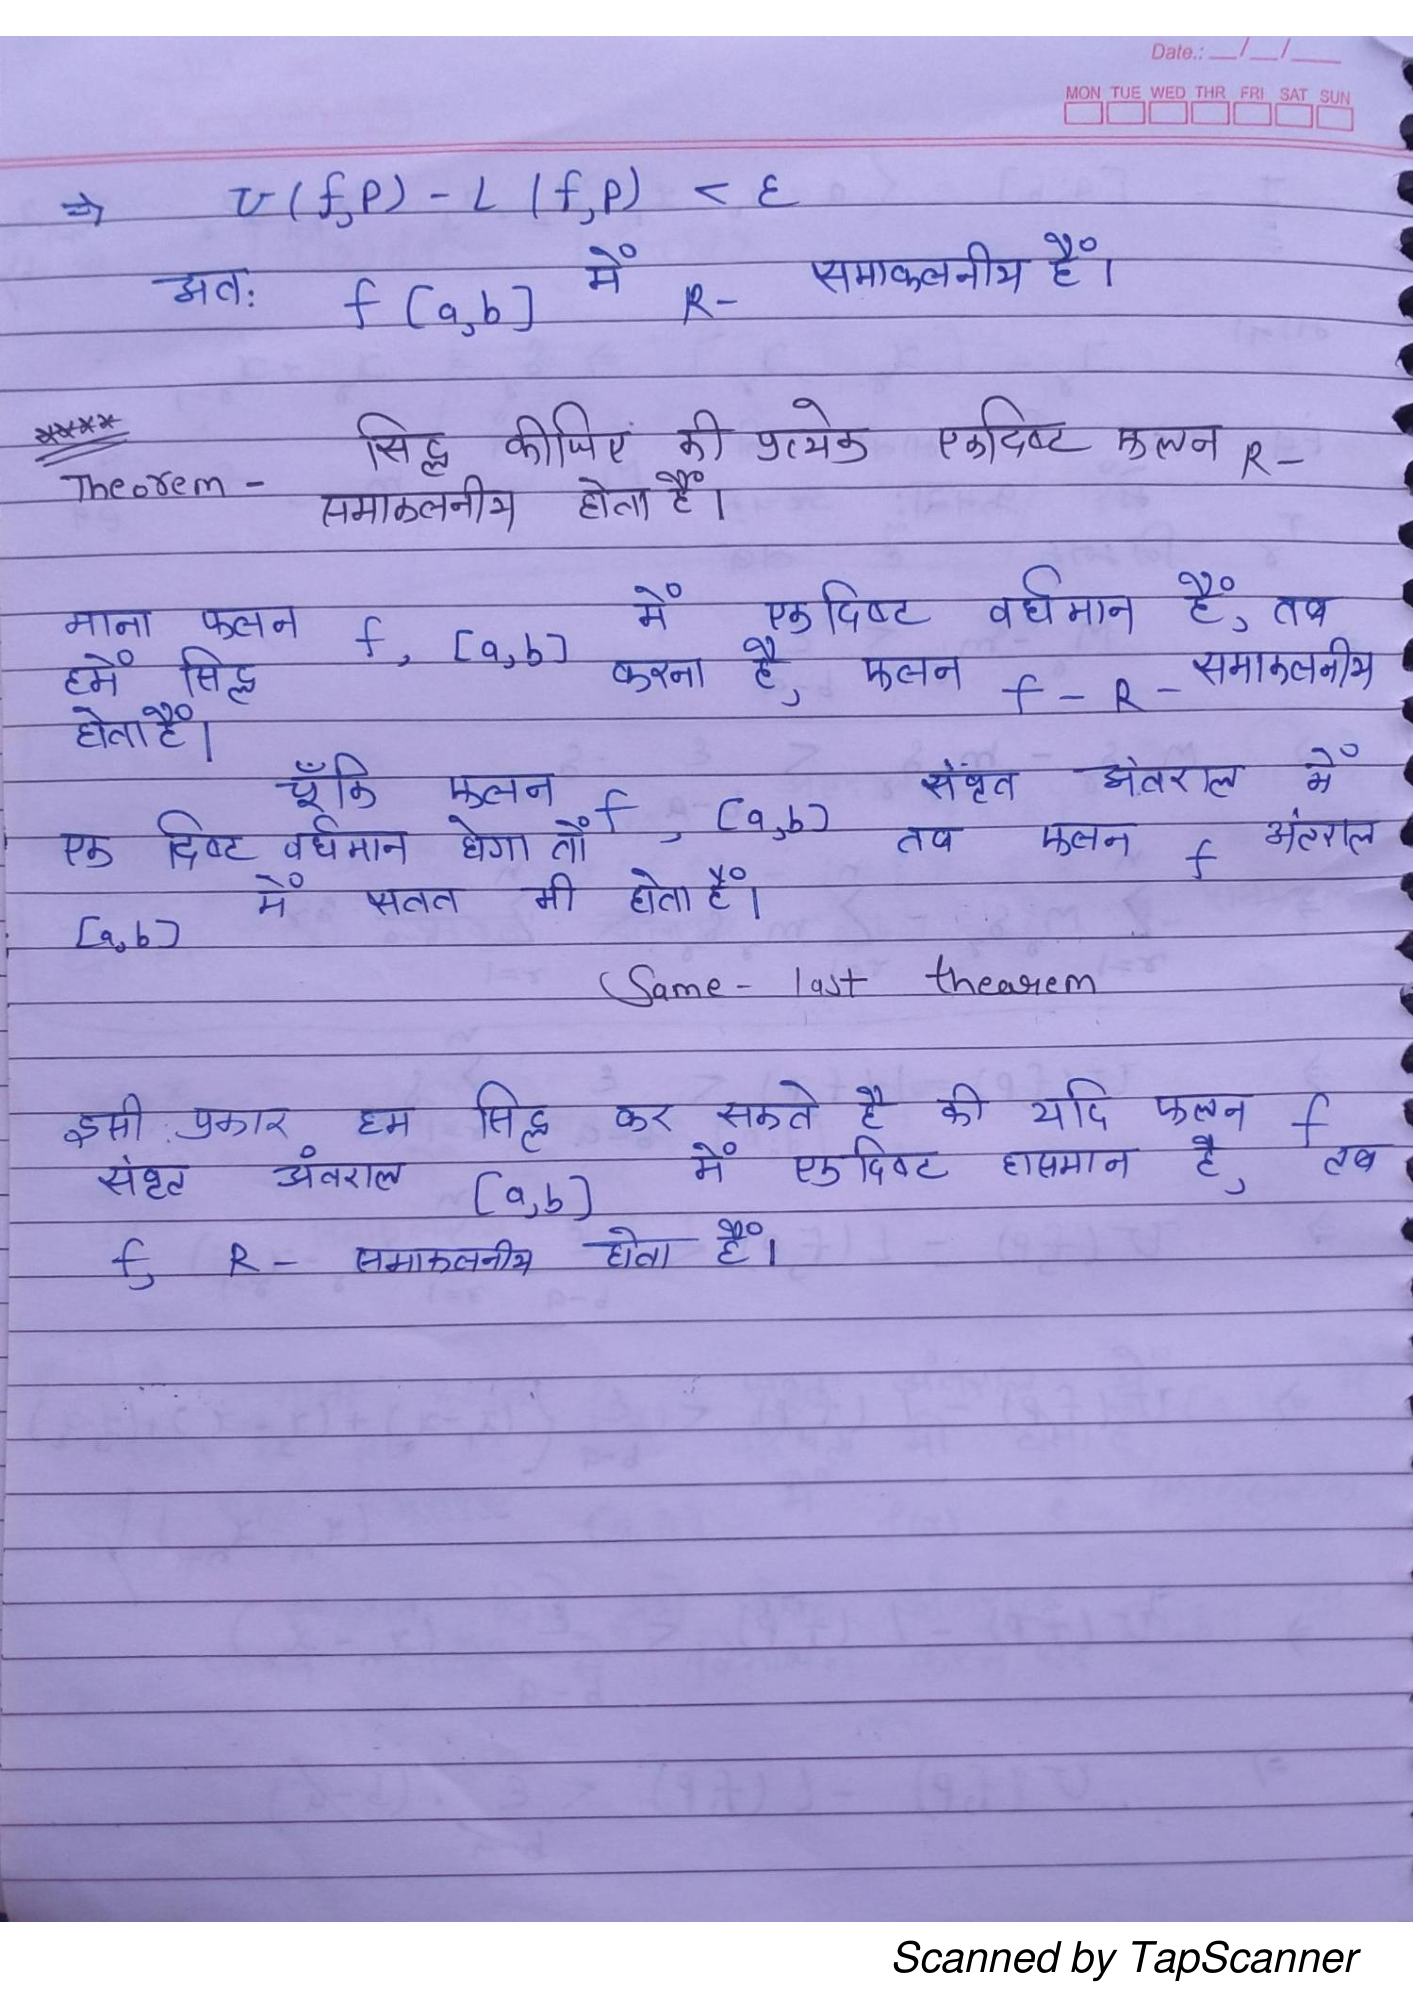 Date.: __/__/__
MON TUE WED THR FRI SAT SUN
⇒ U(f,P) - L(f,P) < ε
अतः f [a,b] में R- समाकलनीय हैं।
****
Theorem - सिद्ध कीजिएं की प्रत्येक एकदिष्ट फलन R-
समाकलनीय होता हैं।
माना फलन f, [a,b] में एकदिष्ट वर्धमान हैं, तब
हमें सिद्ध करना है, फलन f - R - समाकलनीय
होता हैं।
चूँकि फलन f, [a,b] संवृत अंतराल में
एक दिष्ट वर्धमान होगा तों तब फलन f अंतराल
[a,b] में सतत भी होता हैं।
Same - last thearem
इसी प्रकार हम सिद्ध कर सकते है की यदि फलन f
संवृत अंतराल [a,b] में एकदिष्ट हासमान है, तब
f, R- समाकलनीय होता हैं।
Scanned by TapScanner